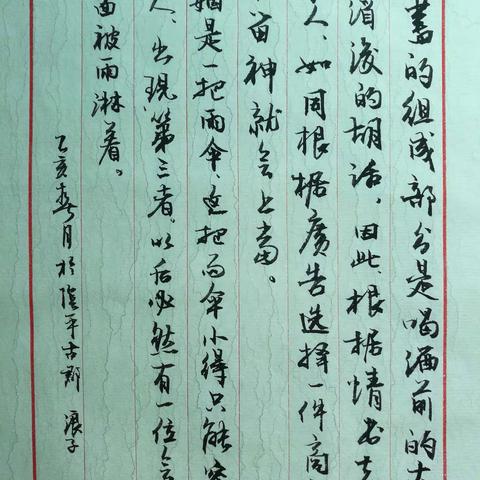 書的组成部分是喝酒前的
酒後的胡话。因此,根据情书去
人,如同根据廣告选择一件商
留神就会上当。
姻是一把雨伞,这把雨伞小得只能容
人,出现第三者,以后必然有一位会
面被雨淋着。
乙亥春月於陰平古郡 浪子